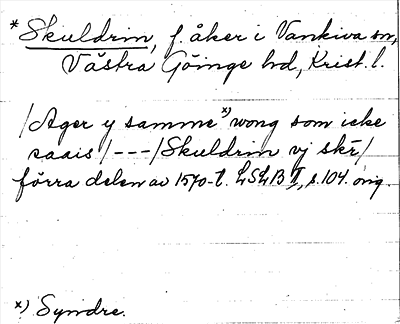 * Skuldrin, f åker i Vankiva sn,
Västra Göinge hd, Krist. l.
/Ager y samme x) wong som icke
saais/---/Skuldrin vj skr/
förra delen av 1570-t. LSLB II, s. 104. orig.
x) Syndre.